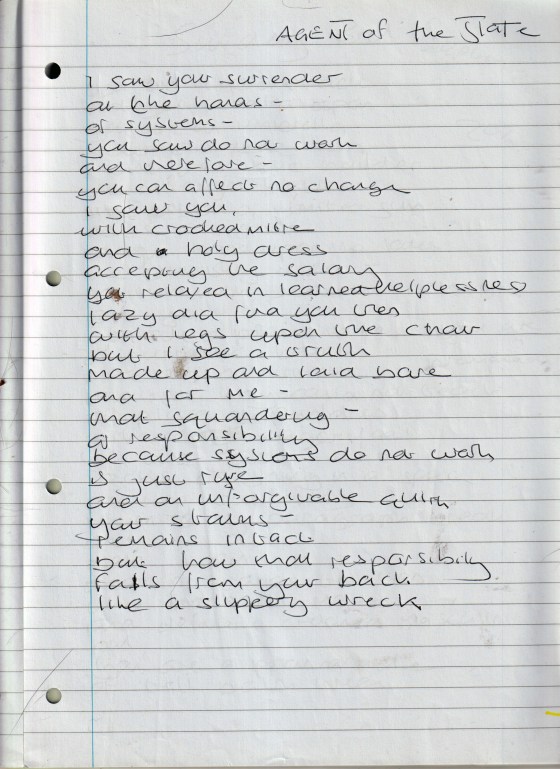 AGENT of the State
I saw your surrender
at the hands -
of systems -
you saw do not work
and therefore -
you can affect no change
I saw you,
with crooked mitre
and a holy dress
accepting the salary
you relaxed in learned helplessness
lazy did find you then
with legs upon the chair
but I see a truth
made up and laid bare
and for me -
that squandering -
of responsibility
because systems do not work
is just
and an unforgivable quirk
your status -
remains intact
but how that responsibility
falls from your back
like a slippery wreck